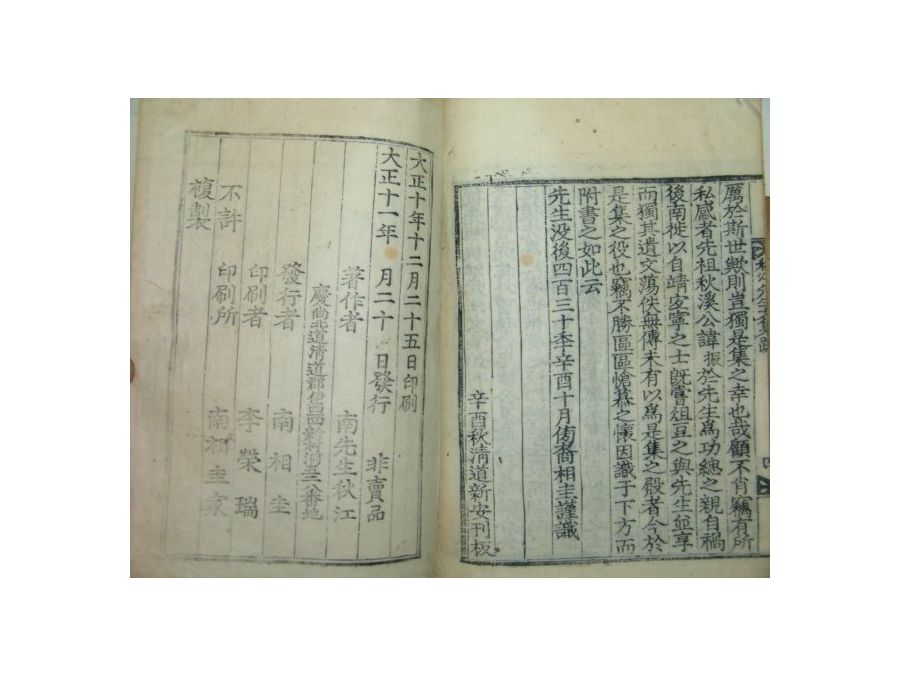 厲於斯世歟則豈獨是集之幸也哉顧不肖竊有所
私感者先祖秋溪公諱振於先生爲功緦之親自禍
後南徙以自靖密寧之士旣嘗俎豆之與先生並享
而獨其遺文蕩佚無傳未有以爲是集之殿者今於
是集之役也竊不勝區區愴慕之懷因識于下方而
附書之如此云
先生沒後四百三十季辛酉十月傍裔相圭謹識
辛酉秋淸道新安刊板
大正十年十二月二十五日印刷
大正十一年 月二十 日發行 非賣品
著作者 南先生秋江
慶尙北道淸道郡伊西面新村洞 八番地
發行者 南相圭
印刷者 李榮瑞
印刷所 南相圭家
不許
複製